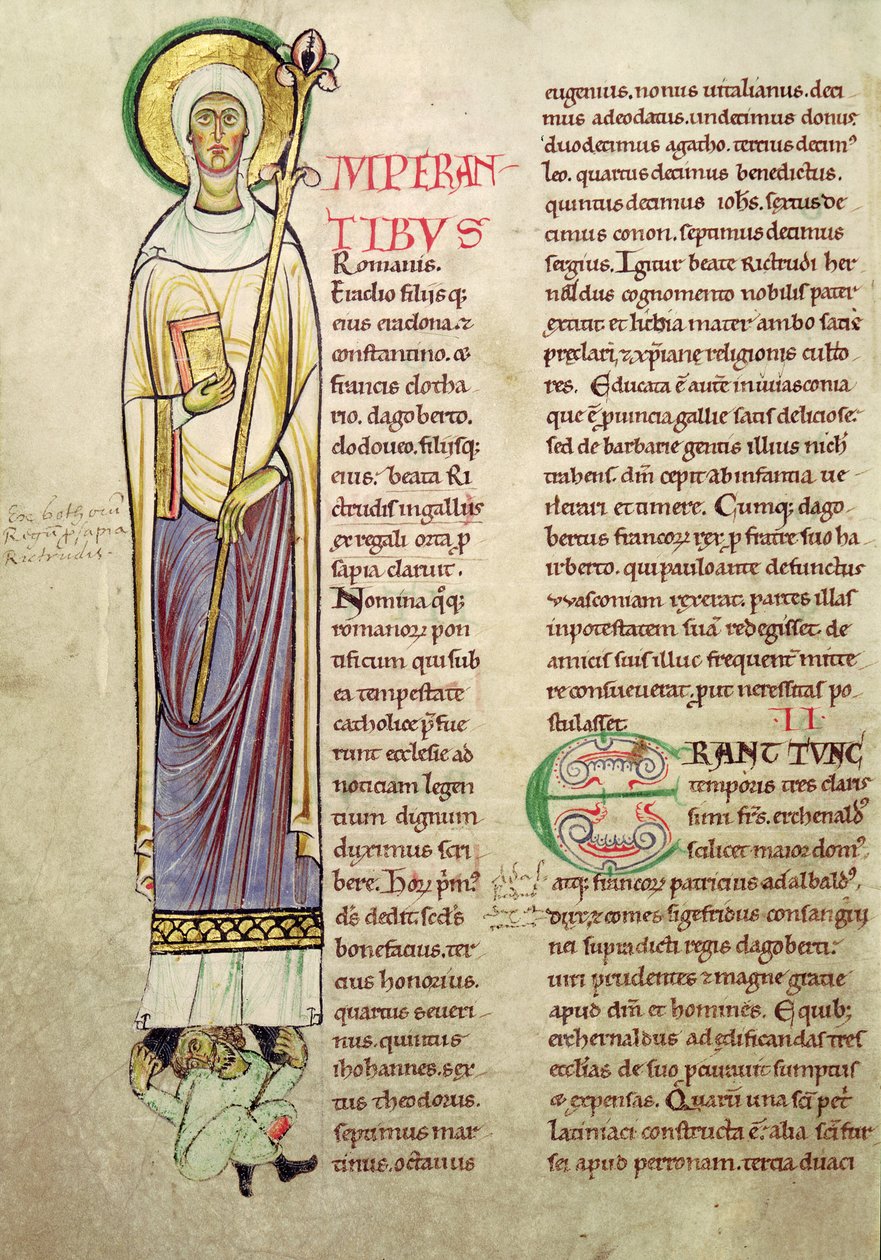 IMPERAN-
TIBVS
Romanis.
Eraclio filiisq;
eius eraclona. &
constantino. &
francis clotha
rio. dagoberto.
clodoueo. filiisq;
eius; beata Ri
ctrudis in galliis
ex regali orta p̱
sapia claruit.
Nomina q̊q;
romanoꝝ pon
tificum qui sub
ea tempestate
catholice p̄fue
runt ecclesie ad
noticiam legen
tium dignum
duximus scri
bere. Hoꝝ p̄m᷒
ds̄ dedit. scd̄s
bonefacius. ter
cius honorius.
quartus seueri
nus. quintus
ihohannes. sex
tus theodorus.
septimus mar
tinus. octauus
eugenius. nonus uitalianus. deci
mus adeodatus. undecimus donus
duodecimus agatho. tercius decim᷒
leo. quartus decimus benedictus.
quintus decimus ioh̄s. sextus de
cimus conon. septimus decimus
sergius. Igitur beate Rictrudi her
noldus cognomento nobilis pater
extitit. et lichia mater ambo satis
preclari, & xp̄iane religionis culto
res. Educata ē aute in uuasconia
que ē puincia gallie satis deliciose;
sed de barbarie gentis illius nich̄
trahens. dm̄ cepit ab infantia ue
nerari et timere. Cumq; dago
bertus francoꝝ rex p̱ fratre suo ha
irberto. qui paulo ante defunctus
vvasconiam rexerat. partes illas
in potestatem suā redegisset. de
amicis suis illuc frequent̄ mitte
re consueuerat. put necessitas po
stulasset.
II.
ERANT TVNC
temporis tres claris
simi frs̄. erchenald᷒
scilicet maior dom᷒
atq; francoꝝ patricius adalbald᷒,
dux & comes sigefridus consangui
nei supradicti regis dagoberti.
uiri prudentes & magne gratie
apud dm̄ et homines. E quib;
erchenaldus ad edificandas tres
ecclias de suo pcurauit sumptus
& expensas. Quarū una sc̄i pet̄
latiniaci constructa ē. alia sc̄i fur
sei apud perronam. tercia duaci
Regū psapia
Rictrudis.